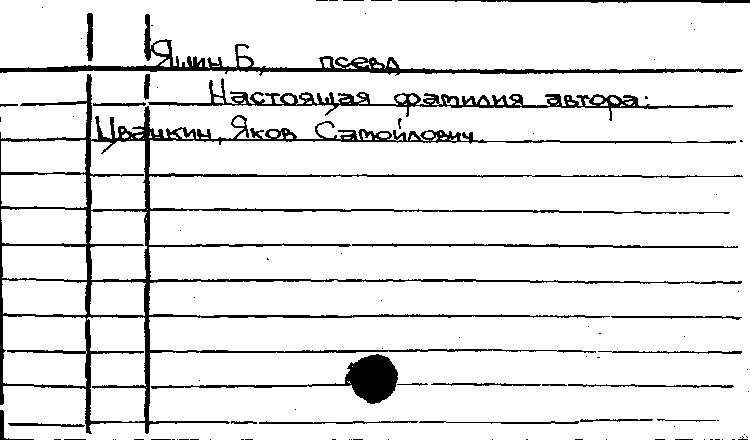 Яшин, Б., псевд.
Настоящая фамилия автора:
Цвацкин, Яков Самойлович.